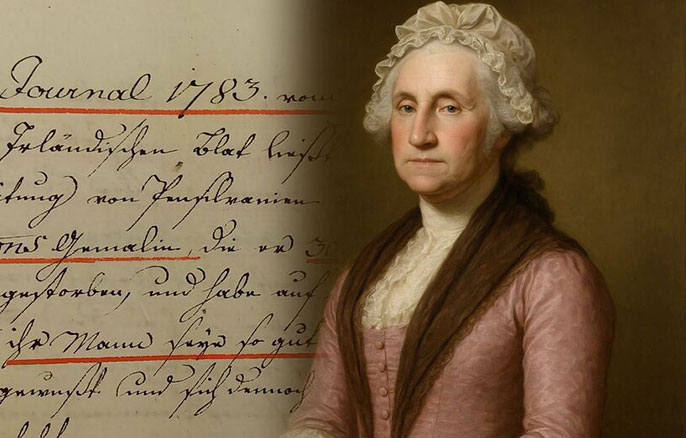 Journal 1783. vom
Irländischen Blat ließt
itung) von Pensilvanien
ons Gemalin, die er 30
gestorben, und habe auf
ihr Mann seye so gut
gewußt und sich dennoch